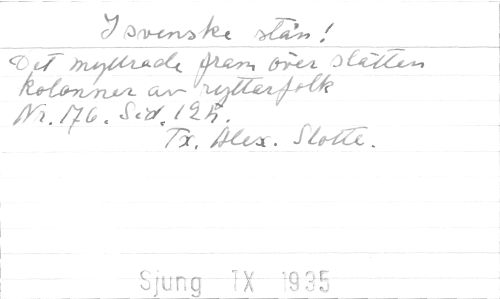 I svenske stån!
Det myllrade fram över slätten
kolonner av ryttarfolk
Nr. 176. Sid. 125.
Tx. Alex. Slotte.
Sjung IX 1935